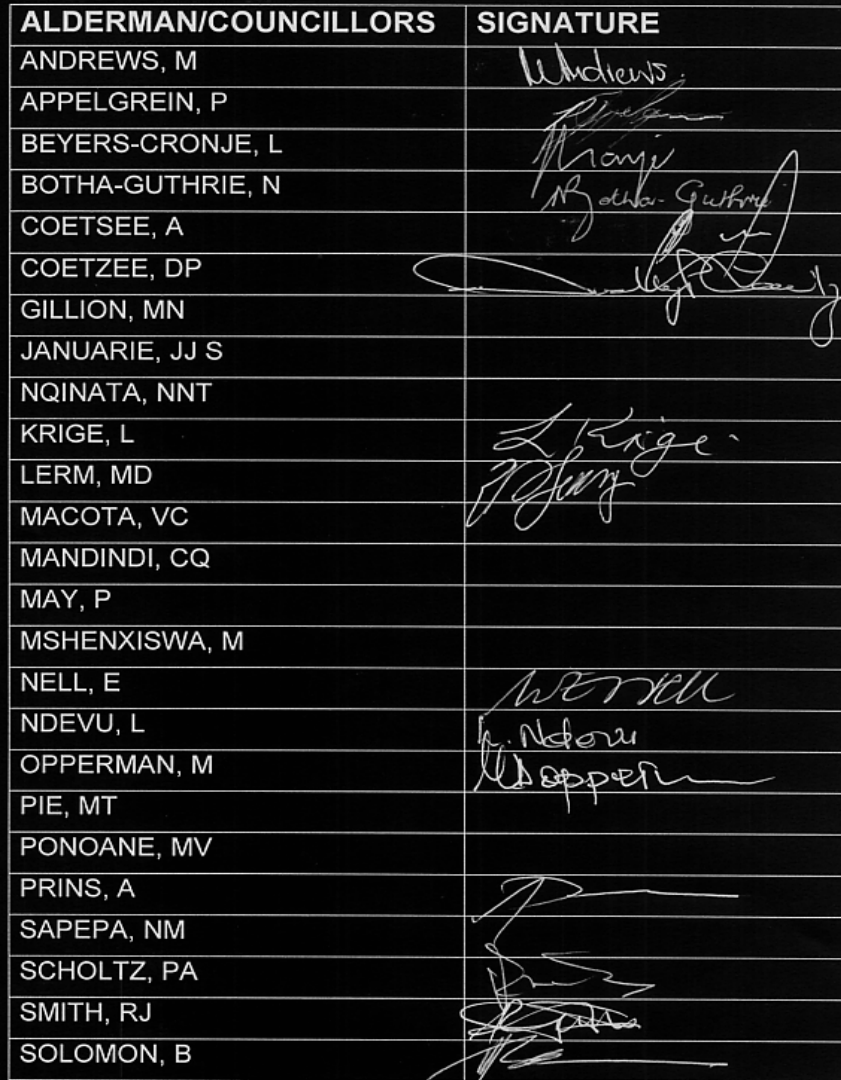 ALDERMAN/COUNCILLORS SIGNATURE
ANDREWS, M
APPELGREIN, P
BEYERS-CRONJE, L
BOTHA-GUTHRIE, N Botha-Guthrie
COETSEE, A
COETZEE, DP
GILLION, MN
JANUARIE, JJ S
NQINATA, NNT
KRIGE, L L Krige
LERM, MD
MACOTA, VC
MANDINDI, CQ
MAY, P
MSHENXISWA, M
NELL, E
NDEVU, L L. Ndevu
OPPERMAN, M
PIE, MT
PONOANE, MV
PRINS, A
SAPEPA, NM
SCHOLTZ, PA
SMITH, RJ
SOLOMON, B